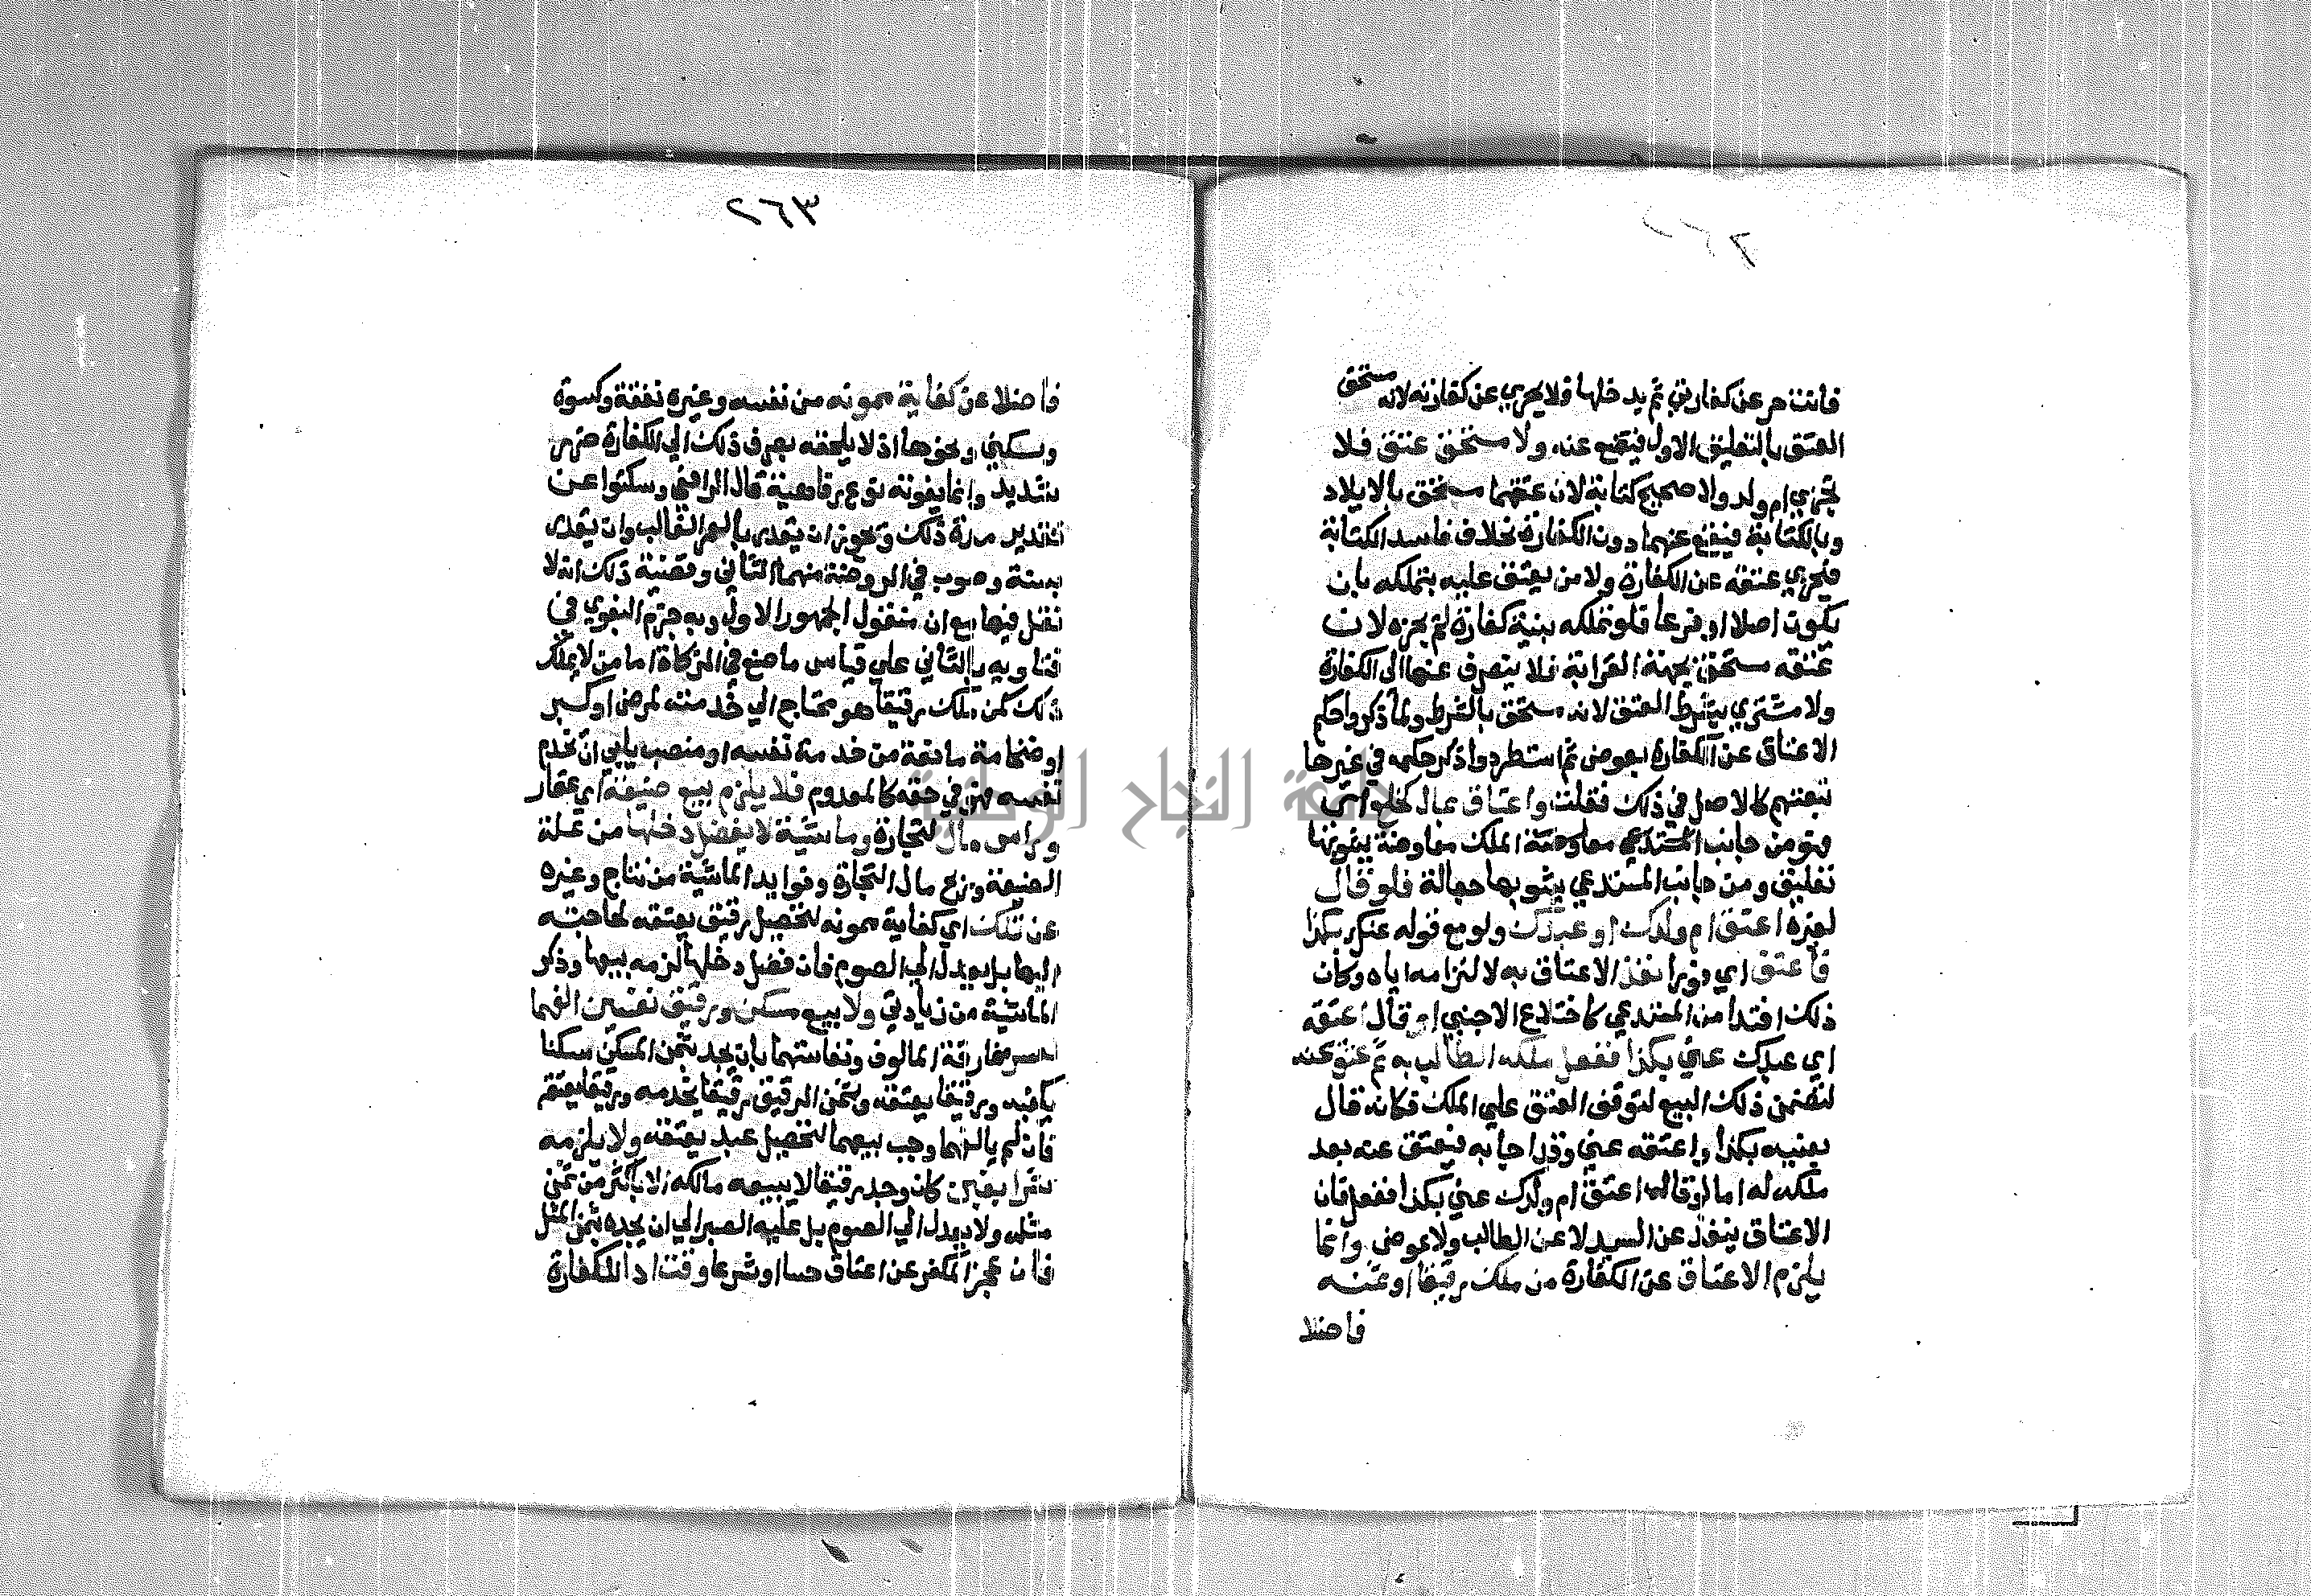 فانت حر عن كفارتي ثم يدخلها فلا يجزي عن كفارته لانه مستحق
العتق بالتعليق الاول فيقع عنه ولا مستحق عتق فلا
تجزي ام ولد ولا صحيح كتابة لان عتقهما مستحق بالايلاد
وبالكتابة فيقع عنهما دون الكفارة بخلاف فاسد الكتابة
فيجزي عتقه عن الكفارة ولا من يعتق عليه بتملكه بان
يكون اصلا او فرعا فلو تملكه بنية كفارة لم يجزه لان
عتقه مستحق بجهة القرابة فلا ينصرف عنها الى الكفارة
ولا مشتري بشرط العتق لانه مستحق بالشرط ولما ذكروا حكم
الاعتاق عن الكفارة بعوض ثم استطردوا ذكر حكمه في غيرها
تبعتهم كالاصل في ذلك فقلت واعتاق بمال كخلع اي
فهو من جانب المستدعى معاوضة الملك معاوضة يشوبها
تعليق ومن جانب المستدعي يشوبها جعالة فلو قال
لغيره اعتق ام ولدك او عبدك ولو مع قوله عنك بكذا
فاعتق اي فورا نفذ الاعتاق به لالتزامه اياه وكان
ذلك افتدا من المستدعي كاختلاع الاجنبي او قال اعتقه
اي عبدك عني بكذا ففعل ملكه الطالب به ثم عتق عنه
لتضمن ذلك البيع لتوقف العتق علي الملك فكانه قال
بعنيه بكذا واعتقه عني وقد اجابه فيعتق عنه بعد
ملكه له اما لو قال اعتق ام ولدك عني بكذا ففعل فان
الاعتاق ينفذ عن السيد لا عن الطالب ولا عوض وانما
يلزم الاعتاق عن الكفارة من ملك رقيقا او ثمنه
فاضلا
٢٦٣
فاضلا عن كفاية ممونه من نفسه وغيره نفقة وكسوة
وسكني ونحوها اذ لا يلحقه بصرف ذلك الي الكفارة ضرر
شديد وانما يفوته نوع رفاهية قال الرافعي وسكتوا عن
تقدير مدة ذلك ويجوز ان يقدر بالعمر الغالب وان يقدر
بسنة وصوب في الروضة منهما الثاني وقضية ذلك انه لا
نقل فيها مع ان منقول الجمهور الاول وبه جزم البغوي في
فتاويه بالثاني علي قياس ما صنع في الزكاة اما من لا يملك
ذلك كمن ملك رقيقا هو محتاج الي خدمته لمرض او كبر
او ضخامة مانعة من خدمة نفسه او منصب يابي ان يخدم
نفسه فهو في حقه كالمعدوم فلا يلزم بيع ضيعة اي عقار
وراس مال التجارة وماشية لا يفضل دخلها من غلة
الضيعة وربح مال التجارة وفوايد الماشية من نتاج وغيره
عن تلك اي كفاية ممونه لتحصيل رقيق يعتقه لحاجته
اليها بل يعدل الي الصوم فان فضل دخلها لزمه بيعها وذكر
الماشية من زيادتي ولا بيع مسكن ورقيق نفيسين الفهما
لعسر مفارقة المالوف ونفاستهما بان يجد بثمن المسكن مسكنا
يكفيه ورقيقا يعتقه وبثمن الرقيق رقيقا يخدمه ورقيقا يعتقه
فان لم يالفهما وجب بيعهما لتحصيل عبد يعتقه ولا يلزمه
شرا بغبن كان وجد رقيقا لا يبيعه مالكه الا باكثر من ثمن
مثله ولا يعدل الي الصوم بل عليه الصبر الي ان يجده بثمن المثل
فان عجز المكفر عن اعتاق حسا او شرعا وقت ادا الكفارة
جامعة النجاح الوطنية